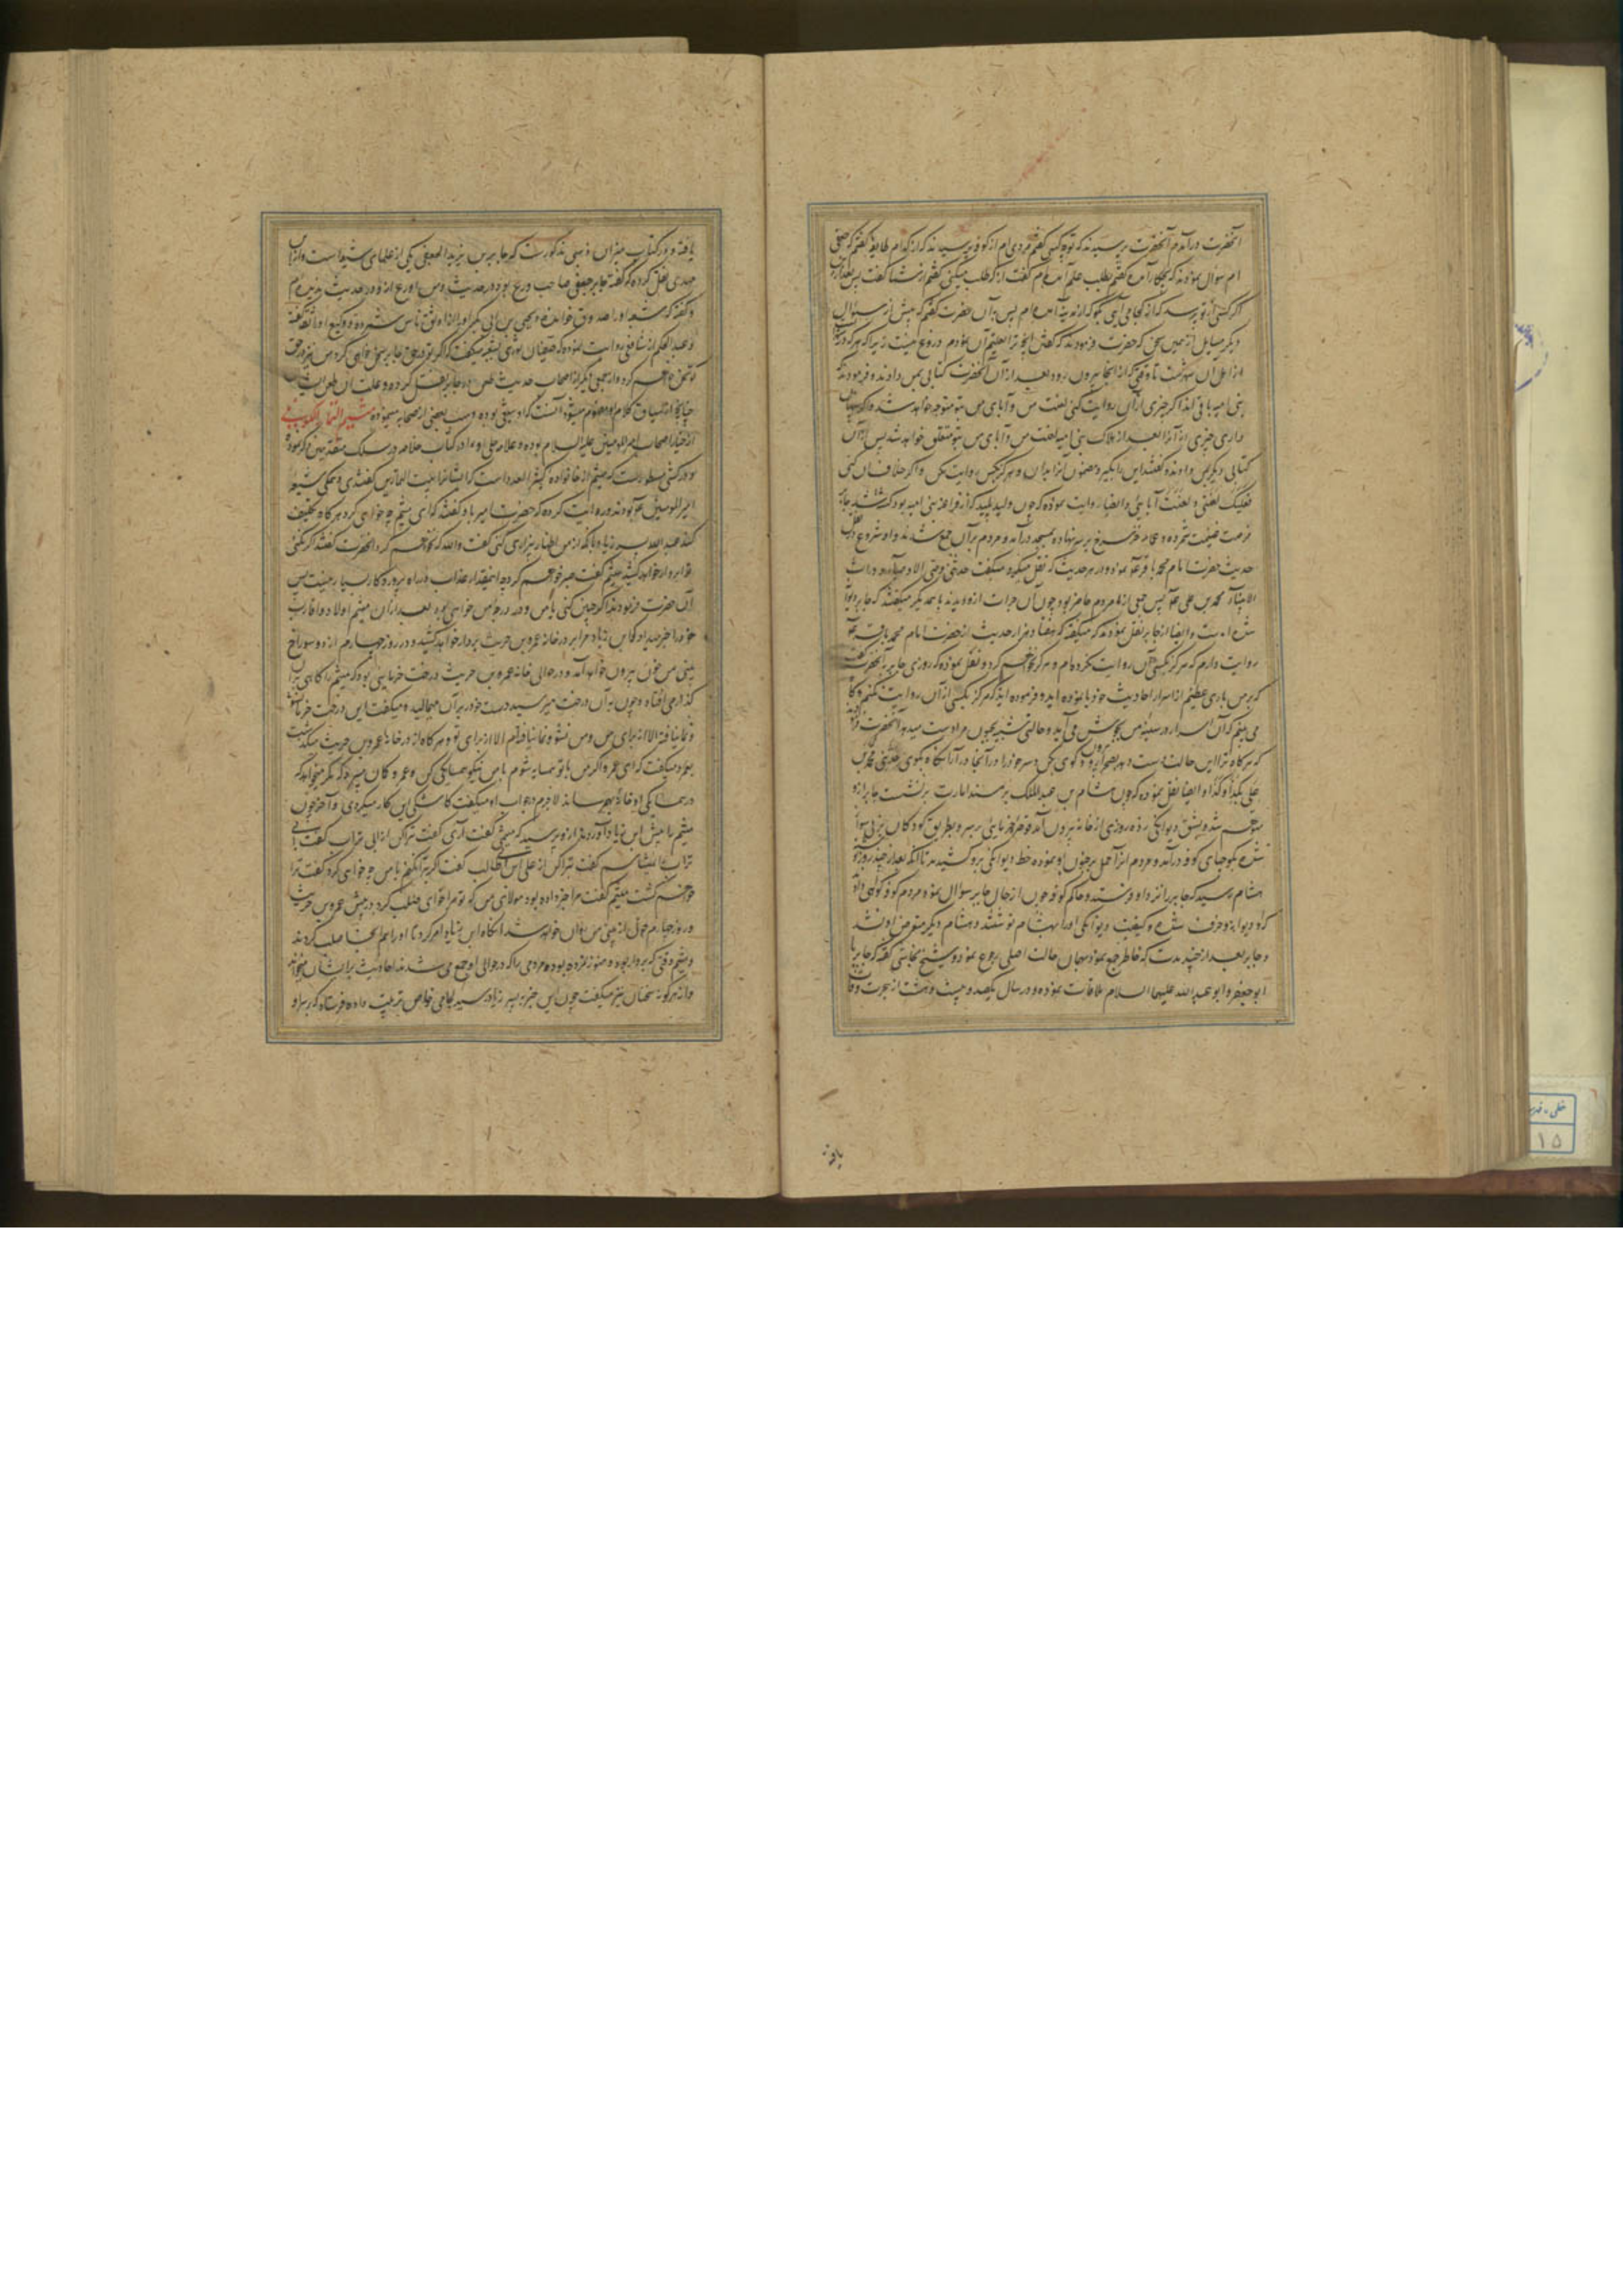 آنحضرت درآمدم آنحضرت پرسیدند که تو چه کسی گفتم مردی ام از کوفه پرسیدند که از کدام طایفه گفتم که جعفی
ام سوال نمودند که بچه کار آمده گفتم بطلب علم آمده ام گفت از که طلب میکنی گفتم از شما گفت پس بعد ازین
اگر کسی از تو پرسد که از کجا می آیی بگو که از مدینه آمده ام پس بآن حضرت گفتم که پیش از سوال
دیگر مسایل از همین سخن که حضرت فرمودند که گفتن آنچه ترا تعلیم آن نمودم دروغ نیست زیرا که هر که در
از اهل آن شهرست تا وقتی که از آنجا بیرون رود و بعد از آن آنحضرت کتابی بمن دادند و فرمودند که
بنی امیه باقی اند اگر چیزی از آن روایت کنی لعنت من و آبای من بتو متوجه خواهد شد و اگر پنهان
داری چیزی از آنرا بعد از هلاک بنی امیه لعنت من و آبای من بتو متعلق خواهد شد پس از آن
کتابی دیگر بمن دادند و گفتند این را بگیر و مضمون آنرا بدان و هرگز بکس روایت مکن و اگر خلاف آن کنی
فعلیک لعنتی و لعنت آبایی و ایضا روایت نموده که چون ولید پلید که از فراعنه بنی امیه بود کشته شد جابر
فرصت غنیمت شمرده و عمامه خز سرخ بر سر نهاده بمسجد درآمد و مردم بر آن جمع شدند و او شروع در نقل
حدیث حضرت امام محمد باقر نموده و در هر حدیث که نقل میکرد میگفت حدثنی وصی الاوصیاء و وارث
الانبیاء محمد بن علی پس جمعی از مردم حاضر بود چون آن جرات از او دیدند با همدیگر میگفتند که جابر دیوانه
شده است و ایضا از جابر نقل نمودند که میگفته که هفتاد هزار حدیث از حضرت امام محمد باقر
روایت دارم که هرگز بکسی آن روایت نکرده ام و هرگز نخواهم کرد و نقل نموده که روزی جابر به آنحضرت گفت
که بر من باری عظیم از اسرار احادیث خود بار نموده اید و فرموده اید که هرگز بکسی از آن روایت نکنم و گاه
می بینم که آن اسرار در سینه من بجوش می آید و حالتی شبیه بجنون مرا دست میدهد آنحضرت فرمود
که هر گاه ترا این حالت دست دهد بصحرا برو و گوی بکن و سر خود را در آنجا درآر آنگاه بگوی حدثنی محمد بن
علی بکذا و کذا و ایضا نقل نموده که چون هشام بن عبدالملک بر مسند امارت بنشست جابر از او
متوهم شده بشق دیوانگی زده روزی از خانه بیرون آمد قوصره خرمایی بر سر و بطریق کودکان بر نی سوار
شده بکوچهای کوفه درآمد و مردم آنرا حمل بر جنون او نموده خط دیوانگی برو کشیدند تا آنکه بعد از چند روز
هشام رسید که جابر را نزد او فرستند و حاکم کوفه چون از حال جابر سوال نمود مردم کوفه گواهی دادند
که او دیوانه و خرف شده و کیفیت دیوانگی او را بهشام نوشتند و هشام دیگر متعرض او نشد
و جابر بعد از چند مدت که خاطر جمع نمود بهمان حالت اصلی رجوع نمود و شیخ نجاشی گفته که جابر با
ابو جعفر و ابو عبدالله علیهما السلام ملاقات نموده و در سال یکصد و بیست و هشت از هجرت وفات
یافته
یافته و در کتاب میزان ذهبی مذکورست که جابر بن یزید الجعفی یکی از علمای شیعه است و از ابن
مهدی نقل کرده که گفته جابر جعفی صاحب ورع بوده در حدیث و من اورع از او در حدیث ندیده ام
و گفته که شعبه او را صدوق خوانده و یحیی بن ابی بکیر او را از اوثق ناس شمرده و وکیع او را ثقه گفته
و عبدالحکم از شافعی روایت نموده که سفیان ثوری بشعبه میگفت که اگر تو در حق جابر سخن خواهی کرد من نیز در حق
تو سخن خواهم کرد و از جمعی دیگر از اصحاب حدیث طعن در جابر نقل کرده و علت آن طعن
چنانچه از سیاق کلام او مفهوم میشود آنست که او شیعی بوده و سب بعضی از صحابه مینموده میثم التمار الکوفی
از خیار اصحاب امیرالمومنین علیه السلام بوده و علامه حلی او را در کتاب خلاصه در سلک مقبولین ذکر نموده
و در کشی مسطورست که میثم از خانواده کثیر العدد است که ایشانرا بیت التمارین گفتندی و همگی شیعه
امیرالمومنین بودند و روایت کرده که حضرت امیر با او گفتند که ای میثم چه خواهی کرد هر گاه تکلیف
کند عبیدالله بن زیاد با آنکه از من اظهار بیزاری کنی گفت والله که نخواهم کرد آنحضرت گفتند اگر نکنی
ترا بر دار خواهد کشید میثم گفت صبر خواهم کرد چه اینقدر عذاب در راه پروردگار بسیار نیست پس
آن حضرت فرمودند اگر چنین کنی با من و در درجه من خواهی بود بعد از آن میثم اولاد و اقارب
خود را خبر میداد که ابن زیاد مرا بر در خانه عمرو بن حریث بر دار خواهد کشید و در روز چهارم از دو سوراخ
بینی من خون بیرون خواهد آمد و در حوالی خانه عمرو بن حریث درخت خرمایی بود که میثم را گاهی بر آن
گذار می افتاد و چون به آن درخت میرسید دست خود بر آن میمالید و میگفت این درخت خرما نشو
و نما نیافته الا از برای من و من نشو و نما نیافته ام الا از برای تو و هر گاه از در خانه عمرو بن حریث میگذشت
بعمرو میگفت که ای عمرو اگر من با تو همسایه شوم با من نیکو همسایگی کن و عمرو گمان میبرد که مگر میخواهد که
در همسایگی او خانه بهم رساند لاجرم در جواب او میگفت کاشکی این کار میکردی و آخر چون
میثم را پیش ابن زیاد آوردند از او پرسید که میثمی گفت آری گفت تبرا کن از ابی تراب گفت ابی
تراب را نمی شناسم گفت تبرا کن از علی ابن ابیطالب گفت اگر تبرا نکنم با من چه خواهی کرد گفت ترا
خواهم کشت میثم گفت مرا خبر داده بود مولای من که تو مرا خواهی صلب کرد در پیش عمرو بن حریث
و روز چهارم خون از بینی من روان خواهد شد آنگاه ابن زیاد امر کرد تا او را هم آنجا صلب کردند
و میثم وقتی که بر دار بوده و هنوز نمرده بوده مردمی را که در حوالی او جمع می شدند احادیث برایشان میخواند
و از هر گونه سخنان نیز میگفت چون این خبر به پسر زیاد رسید لجامی خاص ترتیب داده فرستاد که بر سر او
۱۵